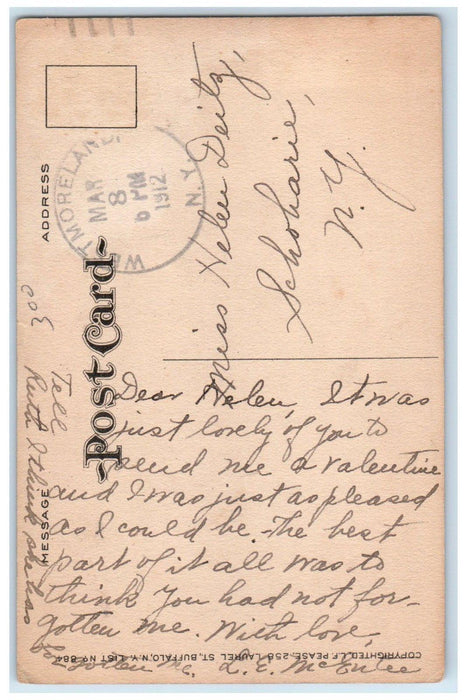 ADDRESS
Post Card
MESSAGE
WESTMORELAND, N.Y.
MAR
8
6 PM
1912
Miss Helen Deitz,
Schoharie,
N.Y.
Dear Helen, It was
just lovely of you to
send me a valentine
and I was just as pleased
as I could be. The best
part of it all was to
think you had not for-
gotten me. With love,
L. E. McEntee
Tell
Ruth I think she has
forgotten me.
300
COPYRIGHTED, L.F. PEASE, 258 LAUREL ST., BUFFALO, N.Y. LIST No 884